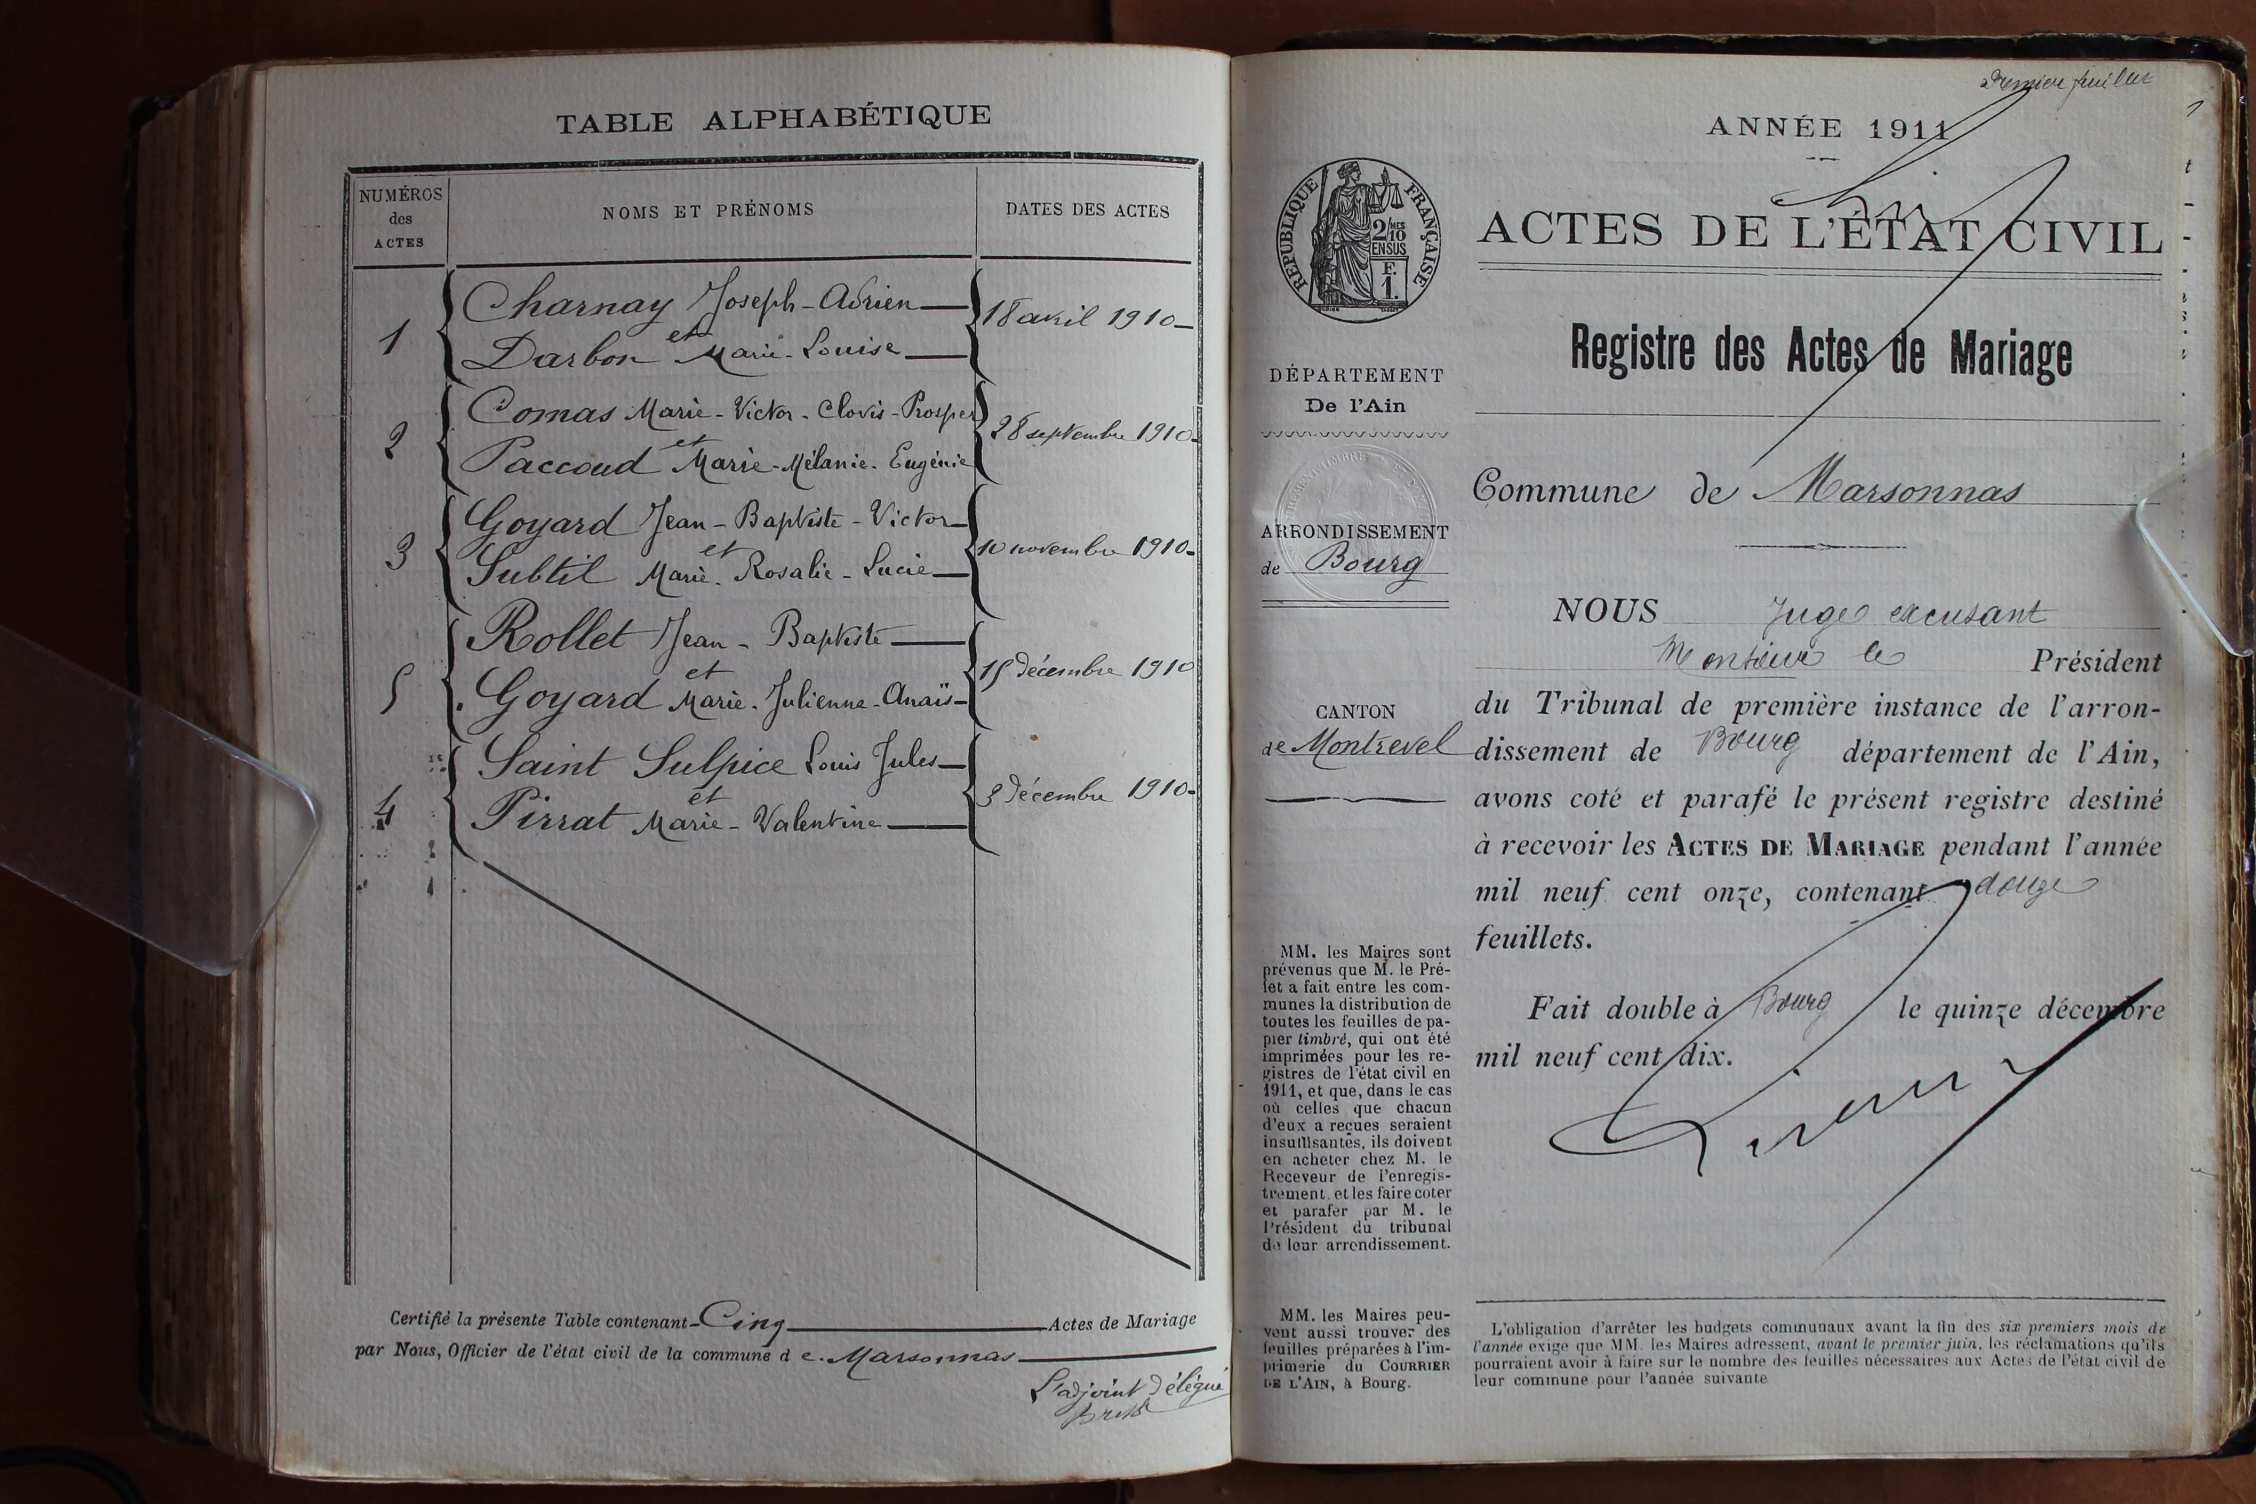 TABLE ALPHABÉTIQUE
NUMÉROS
des
ACTES
NOMS ET PRÉNOMS
DATES DES ACTES
1
Charnay Joseph-Adrien
et
Darbon Marie-Louise
18 avril 1910
2
Comas Marie-Victor-Clovis-Prosper
et
Paccoud Marie-Mélanie-Eugénie
28 septembre 1910
3
Goyard Jean-Baptiste-Victor
et
Subtil Marie-Rosalie-Lucie
10 novembre 1910
5
Rollet Jean-Baptiste
et
Goyard Marie-Julienne-Anaïs
15 décembre 1910
4
Saint Sulpice Louis Jules
et
Pirrat Marie-Valentine
3 décembre 1910
Certifié la présente Table contenant Cinq Actes de Mariage
par Nous, Officier de l'état civil de la commune de Marsonnas
L'adjoint Délégué
Premier feuillet
ANNÉE 1911
ACTES DE L'ÉTAT CIVIL
Registre des Actes de Mariage
RÉPUBLIQUE FRANÇAISE
2/10MES
EN SUS
F.
1.
DÉPARTEMENT
De l'Ain
ARRONDISSEMENT
de Bourg
CANTON
de Montrevel
MM. les Maires sont
prévenus que M. le Pré-
fet a fait entre les com-
munes la distribution de
toutes les feuilles de pa-
pier timbré, qui ont été
imprimées pour les re-
gistres de l'état civil en
1911, et que, dans le cas
où celles que chacun
d'eux a reçues seraient
insuffisantes, ils doivent
en acheter chez M. le
Receveur de l'enregis-
trement et les faire coter
et parafer par M. le
Président du tribunal
de leur arrondissement.
MM. les Maires peu-
vent aussi trouver des
feuilles préparées à l'im-
primerie du COURRIER
DE L'AIN, à Bourg.
Commune de Marsonnas
NOUS Juge excusant
Monsieur le Président
du Tribunal de première instance de l'arron-
dissement de Bourg département de l'Ain,
avons coté et parafé le présent registre destiné
à recevoir les ACTES DE MARIAGE pendant l'année
mil neuf cent onze, contenant douze
feuillets.
Fait double à Bourg le quinze décembre
mil neuf cent dix.
L'obligation d'arrêter les budgets communaux avant la fin des six premiers mois de
l'année exige que MM. les Maires adressent, avant le premier juin, les réclamations qu'ils
pourraient avoir à faire sur le nombre des feuilles nécessaires aux Actes de l'état civil de
leur commune pour l'année suivante